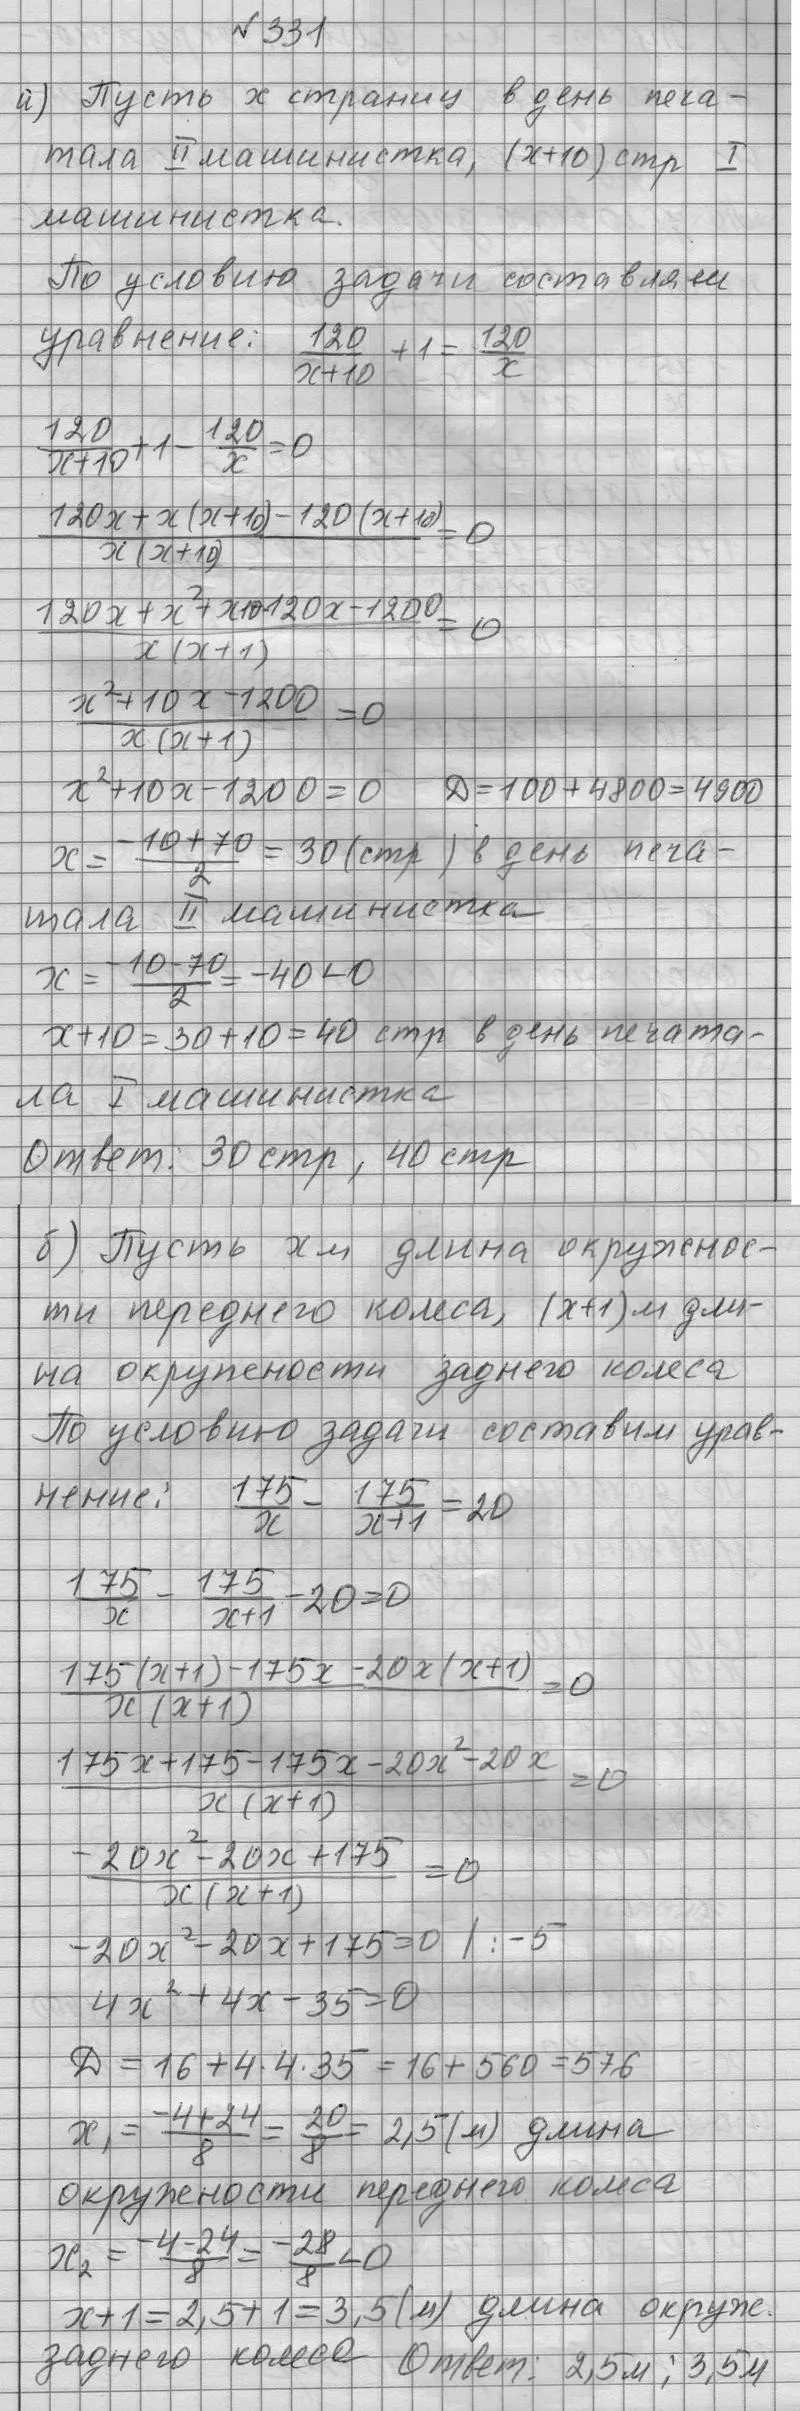 №331
а) Пусть x страниц в день печа-
тала II машинистка, (x+10) стр I
машинистка.
По условию задачи составляем
уравнение: 120/(x+10) + 1 = 120/x
120/(x+10) + 1 - 120/x = 0
(120x + x(x+10) - 120(x+10))/(x(x+10)) = 0
(120x + x² + x10 - 120x - 1200)/(x(x+1)) = 0
(x² + 10x - 1200)/(x(x+1)) = 0
x² + 10x - 1200 = 0 D = 100 + 4800 = 4900
x = (-10 + 70)/2 = 30 (стр) в день печа-
тала II машинистка
x = (-10 - 70)/2 = -40 < 0
x + 10 = 30 + 10 = 40 стр в день печата-
ла I машинистка
Ответ: 30 стр, 40 стр
б) Пусть x м длина окружнос-
ти переднего колеса, (x+1) м дли-
на окружености заднего колеса
По условию задачи составим урав-
нение: 175/x - 175/(x+1) = 20
175/x - 175/(x+1) - 20 = 0
(175(x+1) - 175x - 20x(x+1))/(x(x+1)) = 0
(175x + 175 - 175x - 20x² - 20x)/(x(x+1)) = 0
(-20x² - 20x + 175)/(x(x+1)) = 0
-20x² - 20x + 175 = 0 | : -5
4x² + 4x - 35 = 0
D = 16 + 4·4·35 = 16 + 560 = 576
x₁ = (-4 + 24)/8 = 20/8 = 2,5 (м) длина
окружности переднего колеса
x₂ = (-4 - 24)/8 = -28/8 < 0
x + 1 = 2,5 + 1 = 3,5 (м) длина окруж.
заднего колеса Ответ: 2,5м; 3,5м